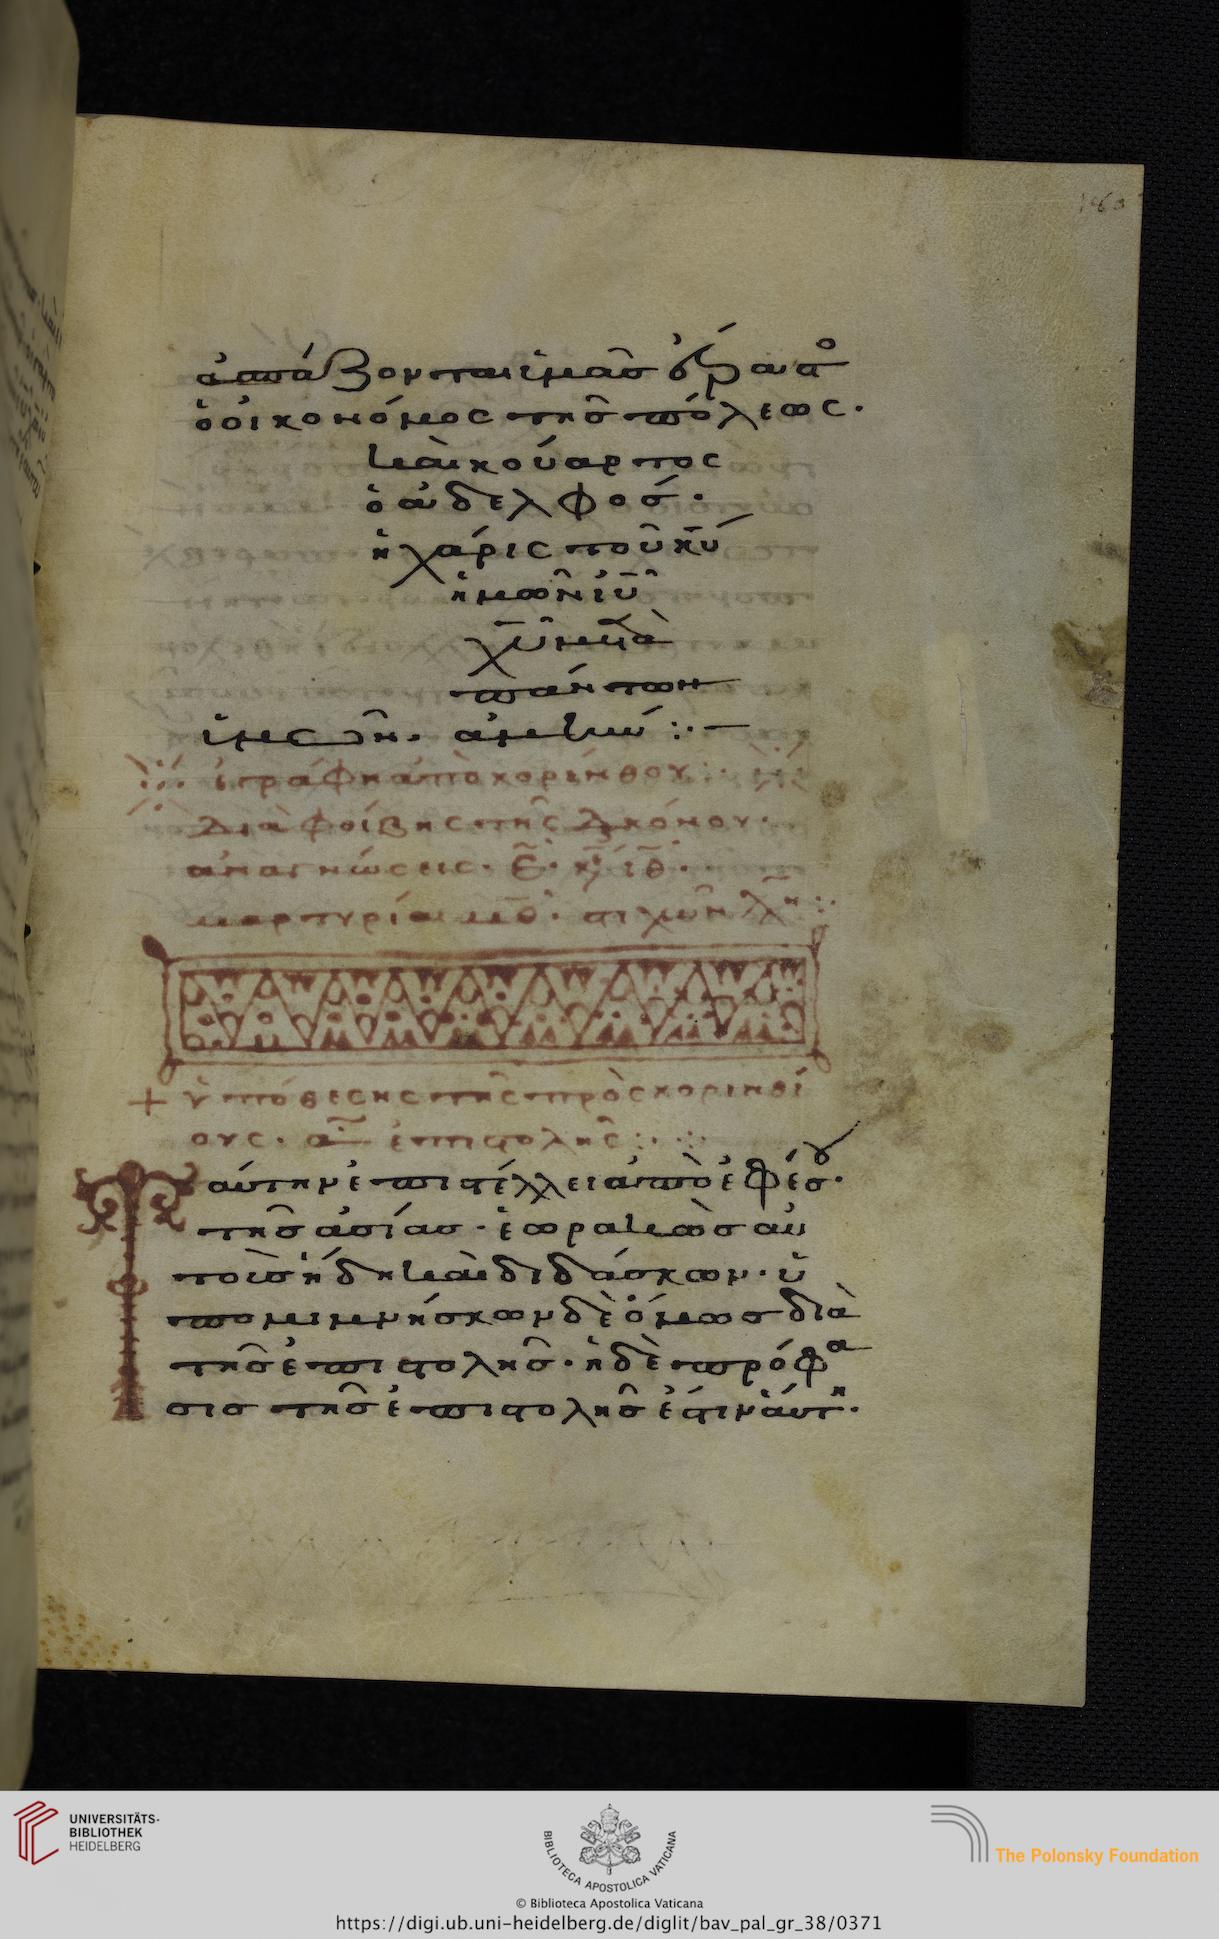 160
ἀσπάζονται ἱμᾶσ ὁ ἔραστο
ὁ οἰκονόμος τῆσ πόλεως.
καὶ κούαρτος
ὁ ἀδελφοσ́.
ἡ χάρις τοῦ κ̅υ̅
ἡμῶν ι̅υ̅
χ̅υ̅ μετὰ
πάντων
ἱμῶν. ἀμείν :·—
ἐγράφη ἀπὸ κορίνθου :·
διὰ φοίβης τῆς διακόνου.
ἀναγνώσεις. ε̅. κϛ ιθ̅.
μαρτυρίαι μθ̅. στίχων λην :·
+ ὑπόθεσης τῆς πρὸς κορινθί
ους. α̅ ἐπιστολῆς :·
Ταύτην ἐπιστέλλει ἀπὸ ἐφέσου.
τῆσ ἀσίασ. ἑωρακὼσ αὐ
τοὺσ ἤδη καὶ διδάσκων. ὑ
πομιμνήσκων δὲ ὅμωσ διὰ
τῆσ ἐπιστολῆσ. ἡ δὲ πρόφα
σισ τῆσ ἐπιστολῆσ ἐστιν αὕτη.
UNIVERSITÄTS-
BIBLIOTHEK
HEIDELBERG
BIBLIOTECA APOSTOLICA VATICANA
The Polonsky Foundation
© Biblioteca Apostolica Vaticana
https://digi.ub.uni-heidelberg.de/diglit/bav_pal_gr_38/0371